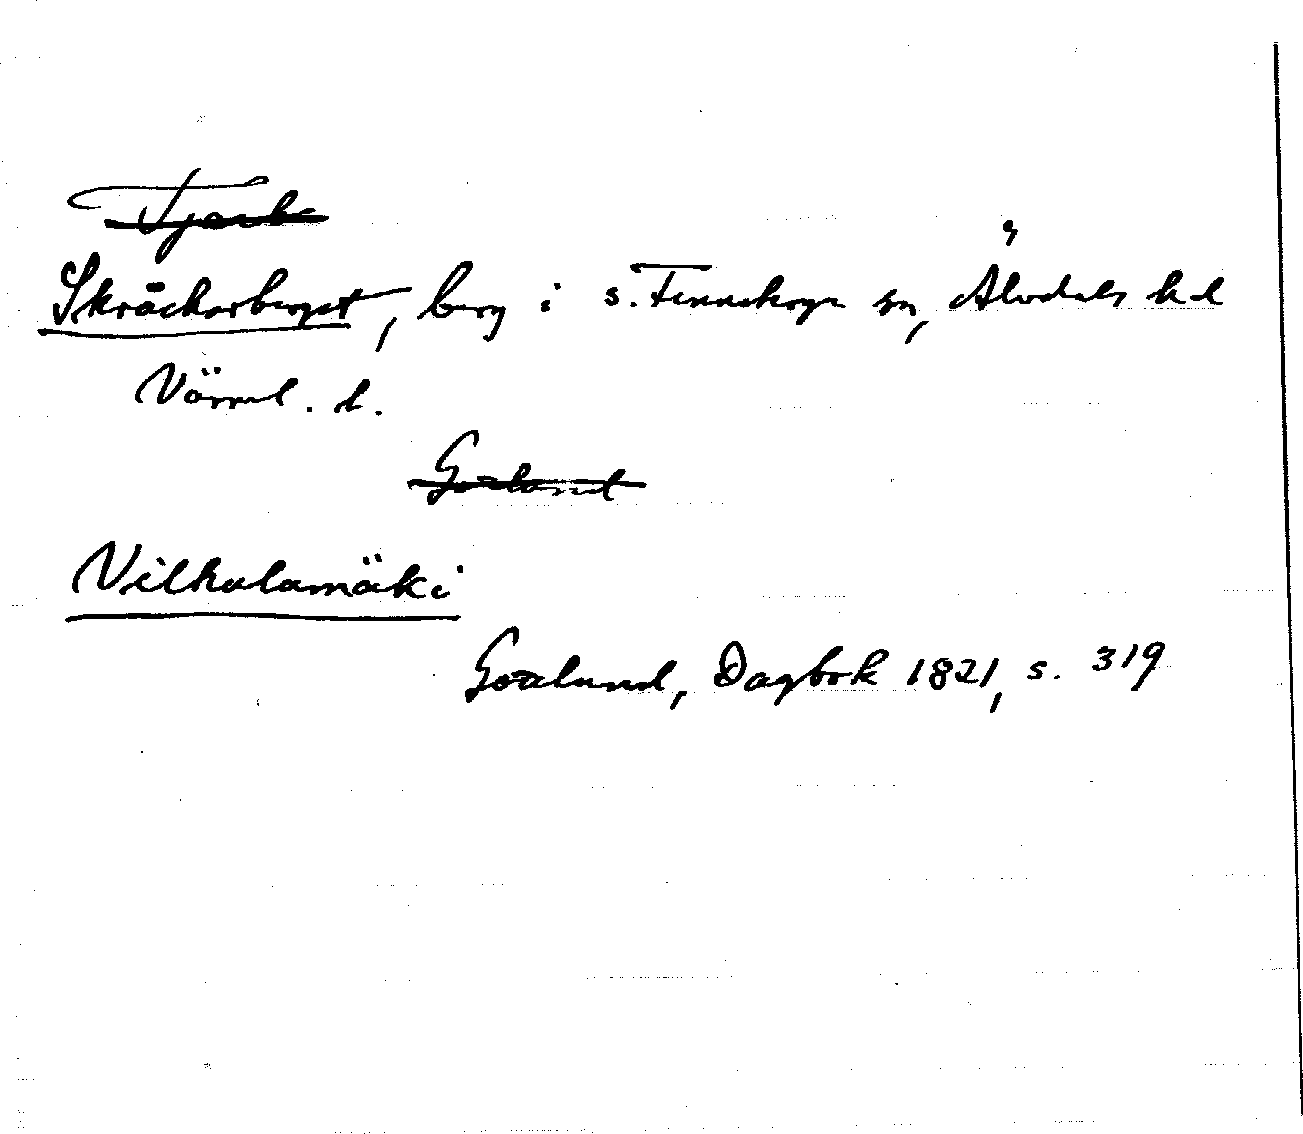 Skräckarberget, berg i s. Finnskoga sn, Älvdals hd
Värml. l.
Gottlund
Vilhulamäki
Gottlund, Dagbok 1821, s. 319